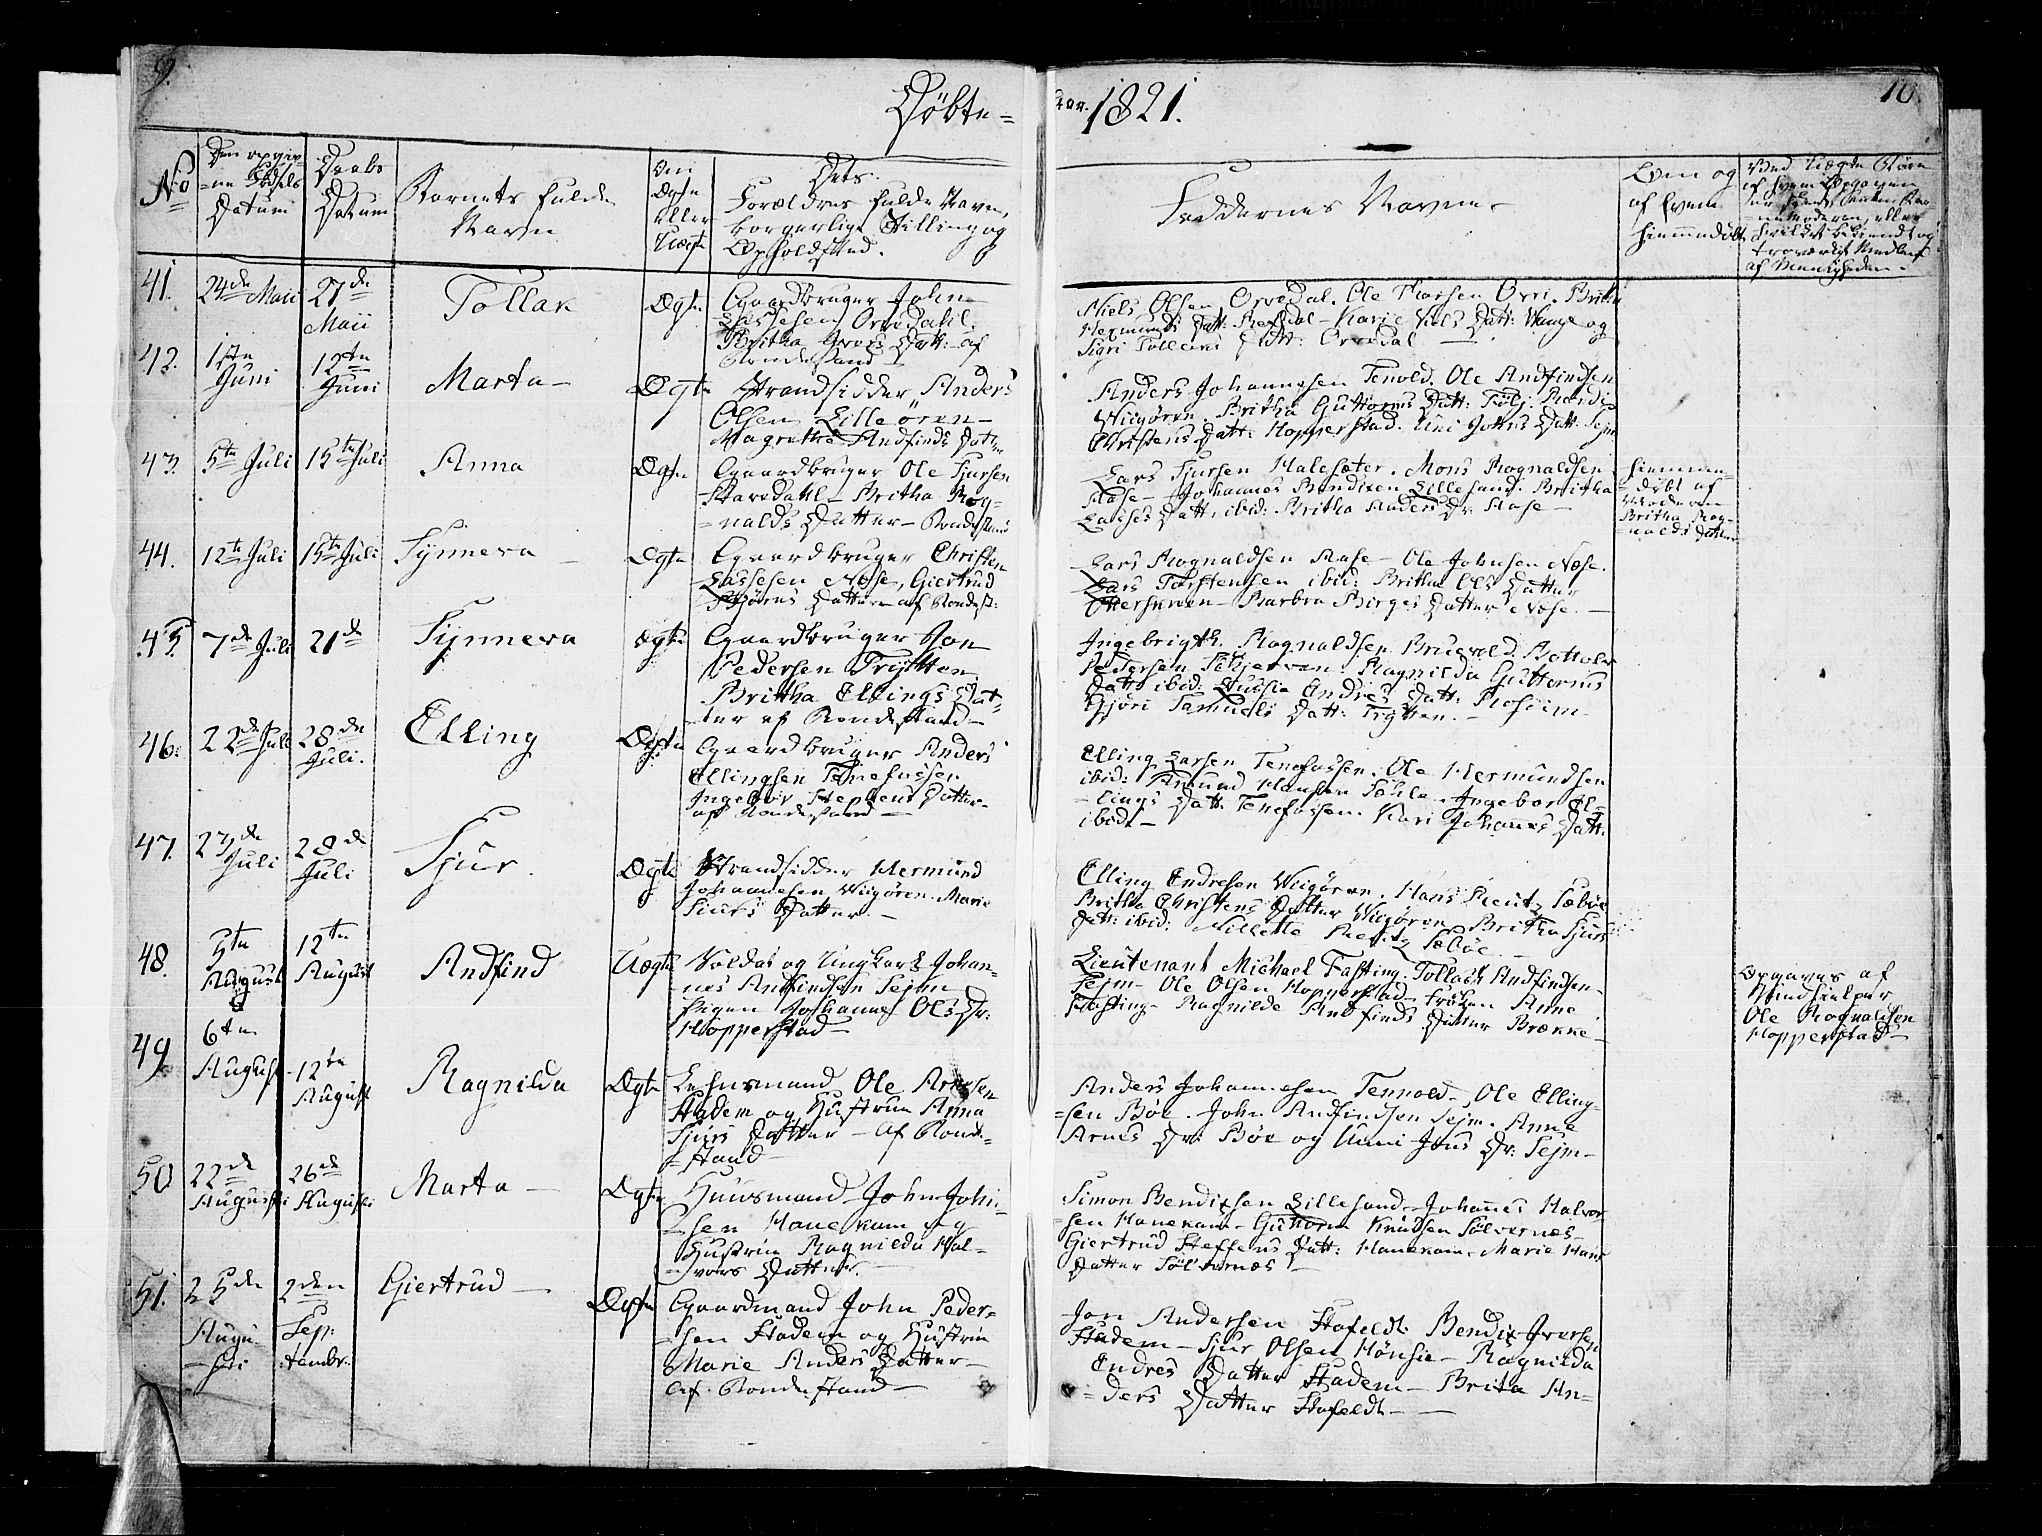 9.
Döbte =
1821.
10.
No
Den opgiv-
=ne Födsels
Datum
Daabs
Datum
Barnets fulde
Navn
Om
Ægte
eller
Uægte
Dets
Forældres fulde Navn,
borgerlige Stilling og
Opholdssted.
Faddernes Navne.
Om og
af hvem
hiemmedöbt
41.
24de Maii
27de
Maii
Tollak
Ægte
Gaardbruger John
Lassesen Orvedahl
Britha Ivers Datt: af
Bondestand
Niels Olsen Orvedal. Ole Larsen Orri. Britha
Hermunds Datt: Refsdal - Karie Niels Datt: Wange og
Sigri Tollevs Datt: Orvedal
42.
1ste
Juni
12te
Juni
Marta
Ægte
Strandsidder Anders
Olsen Lilleören
Magrethe Andfinds Datt
Anders Johannesen Tenold. Ole Andfindsen
Wiigören. Britha Guttorms Datt:
Christens Datt: Hopperstad. Uni Jons Datt: Sejm
43.
5te Juli
15te Juli
Anna
Ægte
Gaardbruger Ole Sjursen
Stavedahl - Britha Rog-
=nalds Datter - Bondestand
Lars Sjursen Halesæter. Mons Rognaldsen
Aase - Johannes Bendixen Lillesand. Britha
Lasses Datt, ibid: Britha Anders Dr. Aase -
hiemme-
=döbt af
Britha Rog-
=nalds Datter
44.
12te Juli
15te Juli
Synneva
Ægte
Gaardbruger Christen
Lassesen Næse, Giertrud
Datter af Bondest:
Lars Rognaldsen Aase - Ole Johnsen Næse.
Lars Torstensen ibid: Britha Ols Datter
Barbra Birges Datter Næse.
45.
7de Juli
21de
Synneva
Ægte
Gaardbruger Jon
Pedersen Trytten
Brittha Ellings Dat-
ter af Bondestand
Ingebrigth Rognaldsen Bruevold. Bottolv
Pedersen Ragnilda Guttorms
Datt: ibid: Andres Datt:
Gjöri Samuels Datt: Trytten.
46.
22de Juli
28de
Juli.
Elling
Ægte
Gaardbruger Anders
Ellingsen Tenefossen
Ingebor Stephens Datter
af Bondestand
Elling Larsen Tenefossen. Ole Hermundsen
ibid: Amund Hansen Ingebor El-
=lings Datt: Tenefossen. Kari Johannes Datt:
ibid.
47.
23de
Juli
28de
Juli
Sjur.
Ægte
Strandsidder Hermund
Johannesen Wiigören. Marie
Siurs Datter.
Elling Endresen Wiigören. Hans Rentz Sæböe
Britha Christens Datter Wiigören Britha Sjurs
Datt: ibid: Millette Rentz Sæböe
48.
5te
August
12te
August
Andfind
Uægte
Soldat og Ungkarl Johan-
nes Andfindsen Sejm
Pigen Johanne Ols Dr:
Hopperstad
Lieutenant Michael Fasting. Tollach Andfindsen
Sejm - Ole Olsen Hopperstad - Fröken Anne
Fasting - Ragnilde Andfinds Datter Brække
Opgaves af
Ole Rognaldsen
Hopperstad
49.
6te
August
12te
August
Ragnilda
Ægte
Ole Arnesen
Stadem og Hustrue Anna
Sjurs Datter - Af Bonde-
=stand
Anders Johannesen Tennold -, Ole Elling-
=sen Böe. John Andfindsen Sejm. Anne
Arnes Dr: Böe og Unni Jons Dr: Sejm
50
22de
Augusti
26de
Augusti
Marta
Ægte
Huusmand John John-
sen Hanekam og
Hustrue Ragnilda Hal-
=vors Datter.
Simon Bendixsen Lillesand - Johannes Halvor-
sen Hanekam - Guttorm Knudsen Sölvernæs
Giertrud Steffens Datt: Hanekam - Marie Hans
Datter Sölvernæs
51.
25de
Augu-
=sti
2den
Sep:
tembr.
Giertrud
Ægte
Gaardmand John Peder-
=sen Stadem og Hustrue
Marie Anders Datter
Af Bondestand
Jon Andersen Hofeldt. Bendix Iversen
Stadem - Sjur Olsen Hönsie - Ragnilda
Endres Datter Stadem - Brita An-
=ders Datter Hofeldt